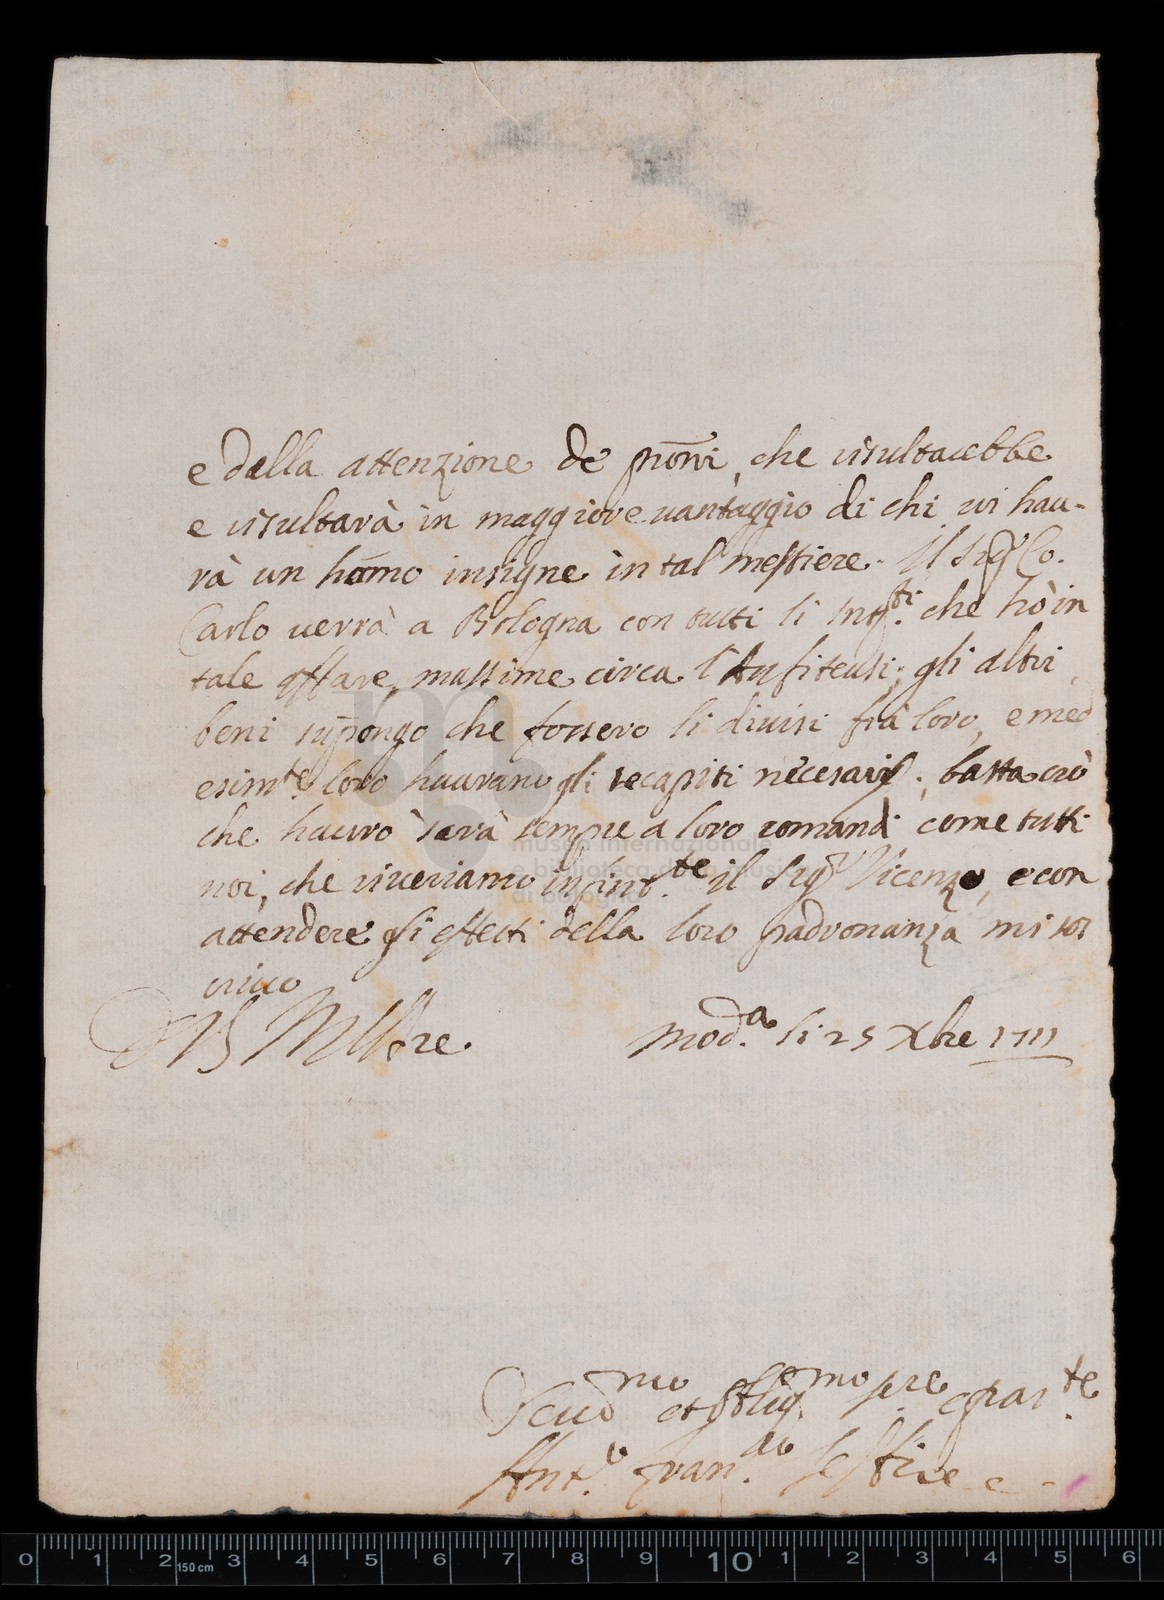 e dalla attenzione de pñni, che risultarebbe
e risultarà in maggiore vantaggio di chi vi hau-
rà un hōmo insigne in tal mestiere. Il Sigr Co.
Carlo uerrà a Bologna con tutti li che hò in
tale affare, massime circa l'Anfiteusi; gli altri
beni supongo che fossero li diuisi frà loro, e med
esimte loro haurano gli recapiti necesarij; basta ciò
che hauro sarà sempre a loro comandi come tutti
noi, che riueriamo il Sigr Vicenzo, e con
attendere gli effetti della loro padronanza mi sos
criuo
D VS Mll Ire Moda. li 25 Xbre 1711
et Oblig.mo serre e par.te
Ant.o Fran.co
museo internazionale
e biblioteca della musica
di bologna
0 1 2 150 cm 3 4 5 6 7 8 9 10 1 2 3 4 5 6